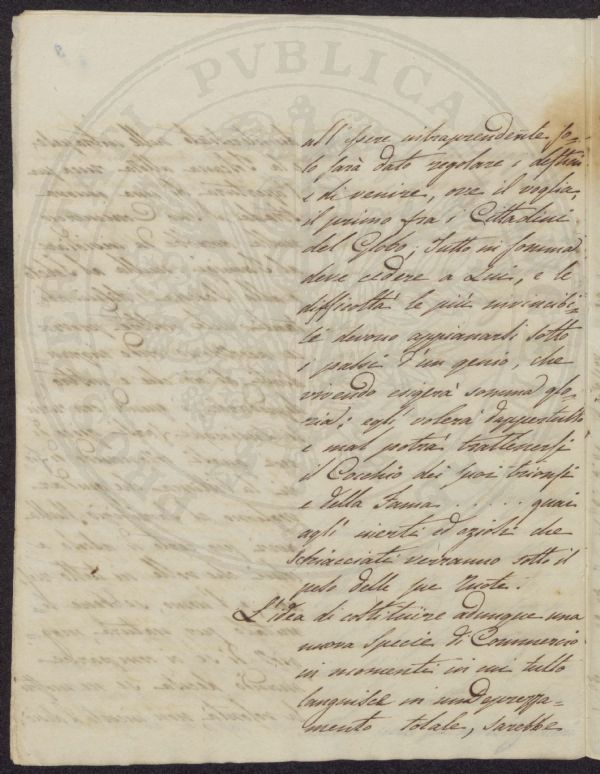 all'essere intraprendente so-
lo sarà dato regolare i destini
e di venire, ove il voglia,
il primo fra i Cittadini
del Globo; tutto in somma
deve cedere a Lui, e le
difficoltà le più invincibi-
li devono appianarsi sotto
i passi d'un genio, che
vivendo esigerà somma glo-
ria; egli volerà dappertutto
e mal potrà trattenersi
il Cocchio dei suoi trionfi
e della Fama ..... guai
agl'inerti ed oziosi che
schiacciati verranno sotto il
peso delle sue ruote.
L'idea di costituire adunque una
nuova specie di Commercio
in momenti in cui tutto
languisce in un deprezza-
mento totale, sarebbe
PUBLICA